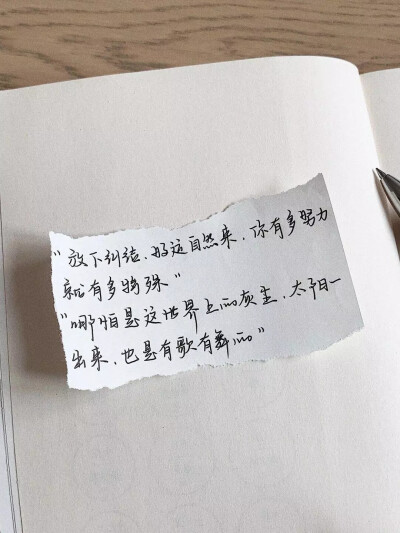 “放下纠结，好运自然来，你有多努力
就有多特殊”
“哪怕是这世界上的灰尘，太阳一
出来，也是有歌有舞的”